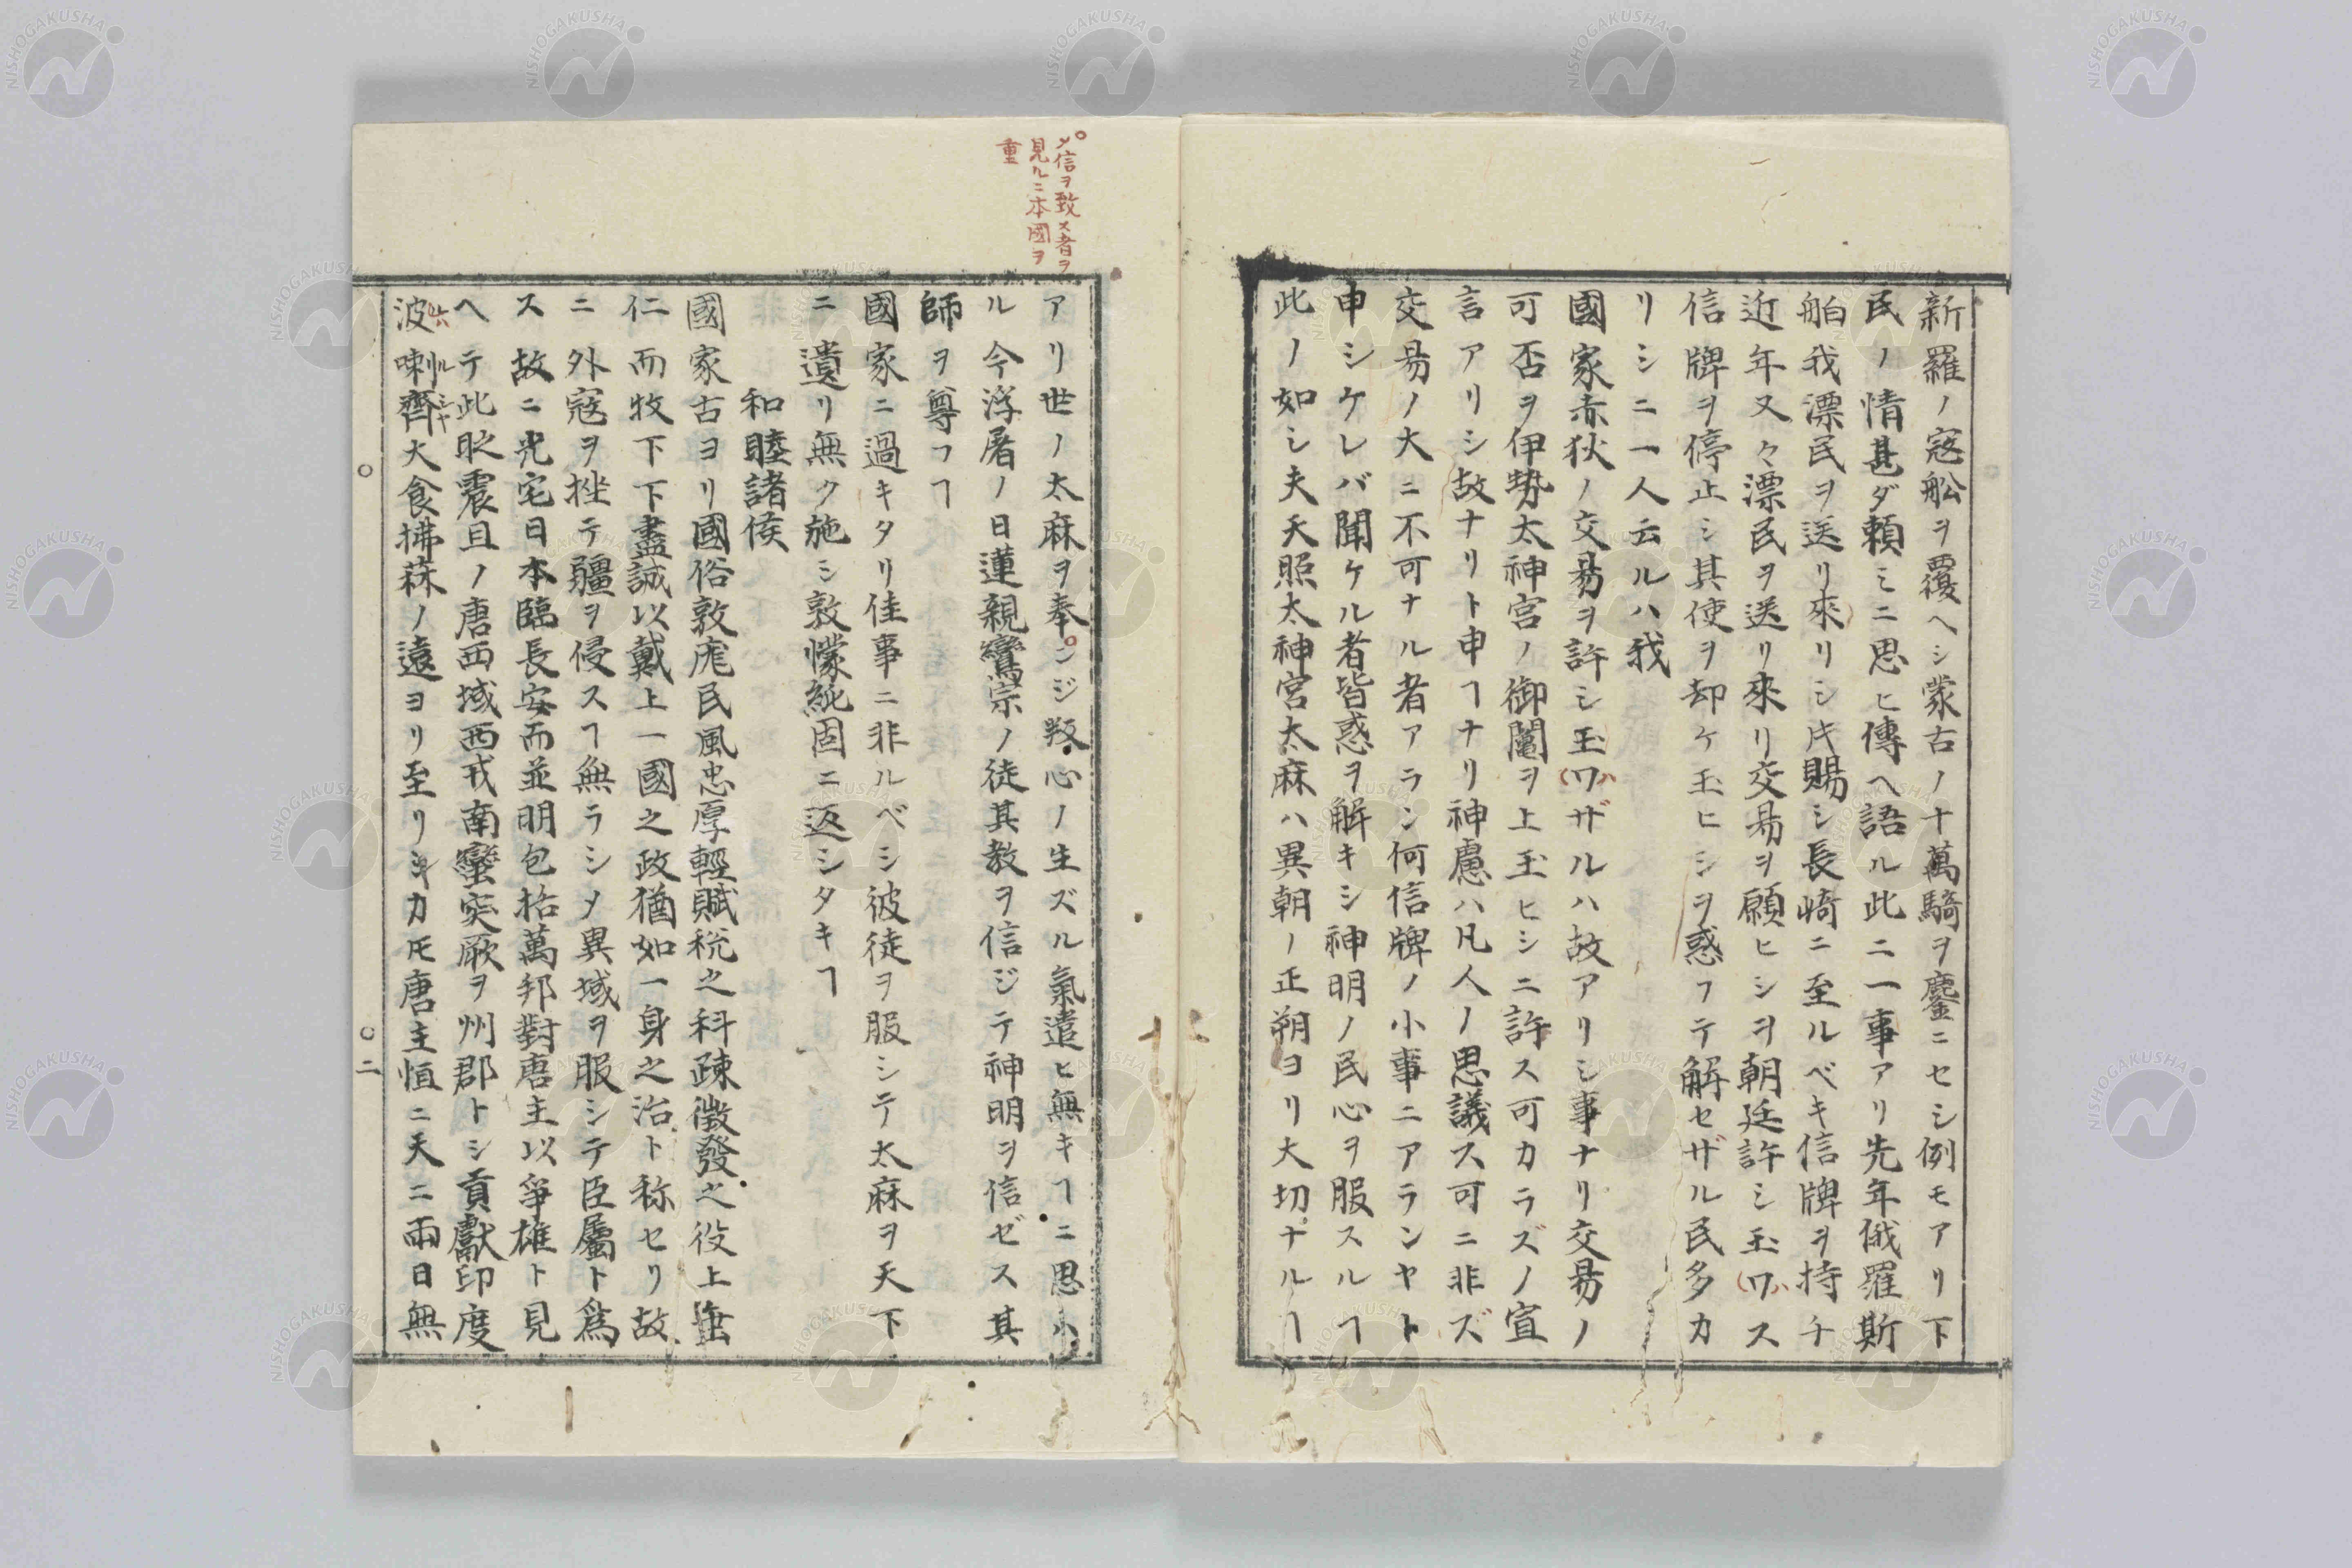 新羅ノ寇舩ヲ覆ヘシ蒙古ノ十萬騎ヲ鏖ニセシ例モアリ下
民ノ情甚ダ頼ミニ思ヒ傳ヘ語ル此ニ一事アリ先年俄羅斯
舶我漂民ヲ送リ來リシ𪜈賜シ長崎ニ至ルベキ信牌ヲ持チ
近年又々漂民ヲ送リ來リ交易ヲ願ヒシヲ朝廷許シ玉ワス
信牌ヲ停止シ其使ヲ却ケ玉ヒシヲ惑フテ解セザル民多カ
リシニ一人云ルハ我
國家赤狄ノ交易ヲ許シ玉ワザルハ故アリシ事ナリ交易ノ
可否ヲ伊勢太神宮ノ御鬮ヲ上玉ヒシニ許ス可カラズノ宣
言アリシ故ナリト申ヿナリ神慮ハ凡人ノ思議ス可ニ非ズ
交易ノ大ニ不可ナル者アラン何信牌ノ小事ニアランヤト
申シケレバ聞ケル者皆惑ヲ解キシ神明ノ民心ヲ服スルヿ
此ノ如シ夫天照太神宮太麻ハ異朝ノ正朔ヨリ大切ナルヿ
メ信ヲ致ス者ヲ
見ルニ本國ヲ
重
アリ世ノ太麻ヲ奉ンジ叛心ノ生ズル氣遣ヒ無キヿニ思ハ
ル今浮屠ノ日蓮親鸞宗ノ徒其教ヲ信ジテ神明ヲ信ゼス其
師ヲ尊フヿ
國家ニ過キタリ佳事ニ非ルベシ彼徒ヲ服シテ太麻ヲ天下
ニ遺リ無ク施シ敦懞純固ニ返シタキヿ
和睦諸侯
國家古ヨリ國俗敦厖民風忠厚輕賦税之科疎徴發之役上垂
仁而牧下下盡誠以戴上一國之政猶如一身之治ト称セリ故
ニ外寇ヲ挫テ疆ヲ侵スヿ無ラシメ異域ヲ服シテ臣屬ト為
ス故ニ光宅日本臨長安而並明包括萬邦對唐主以爭雄ト見
ヘテ此時震旦ノ唐西域西戎南蠻突厥ヲ州郡トシ貢獻印度
波喇齊大食拂菻ノ遠ヨリ至リシカ𪜈唐主恒ニ天ニ兩日無
二